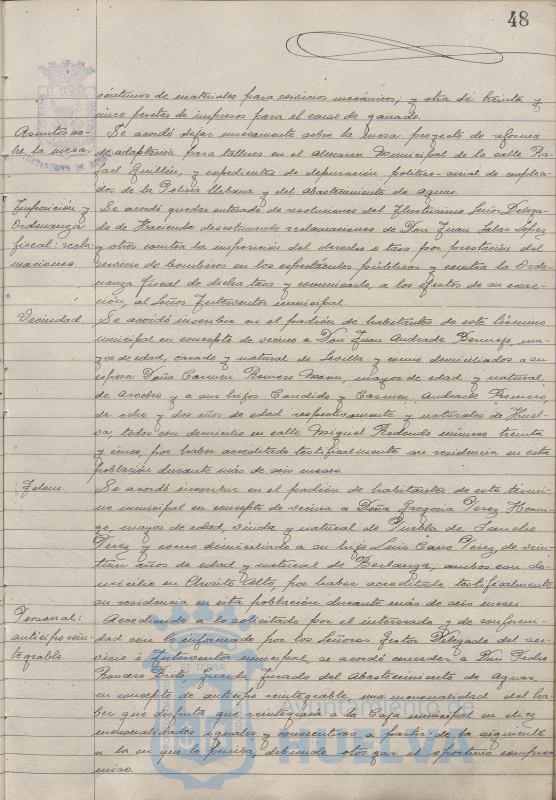 48
céntimos de materiales para servicios mecánicos; y otra de treinta y
cinco pesetas de impresos para el censo de ganado.
Asuntos so-
bre la mesa.
Se acordó dejar nuevamente sobre la mesa proyecto de reforma
de adaptación para talleres en el almacen Municipal de la calle Ra-
fael Guillén, y expedientes de depuración político-social de emplea-
dos de la Policía Urbana y del abastecimiento de aguas.
Imposición y
Ordenanza
fiscal: recla-
maciones.
Se acordó quedar enterado de resoluciones del Ilustrísimo Señor Delega-
do de Hacienda desestimando reclamaciones de Don Juan Salas López
y otros contra la imposición del derecho o tasa por prestación del
servicio de bomberos en los espectáculos públicos y contra la Orde-
nanza fiscal de dicha tasa y comunicarlo, a los efectos de su exac-
ción, al Señor Interventor municipal.
Vecindad.
Se acordó inscribir en el padrón de habitantes de este término
municipal en concepto de vecino a Don Juan Andrade Bermejo, ma-
yor de edad, casado y natural de Sevilla y como domiciliados a su
esposa Doña Carmen Romero, mayor de edad y natural
de Aroche y a sus hijos Candido y Carmen Andrade Romero,
de ocho y dos años de edad respectivamente y naturales de Huel-
va, todos con domicilio en calle Miguel Redondo número treinta
y cinco, por haber acreditado testificalmente su residencia en esta
población durante más de seis meses.
Idem.
Se acordó inscribir en el padrón de habitantes de este térmi-
no municipal en concepto de vecina a Doña Gregoria Perez
mayor de edad, viuda y natural de Puebla de Sancho
Perez y como domiciliado a su hijo Luis Caro Perez, de vein-
tiun años de edad y natural de Berlanga, ambos con do-
micilio en Chorito Alto, por haber acreditado testificalmente
su residencia en esta población durante más de seis meses.
Personal:
anticipo rein-
tegrable.
Accediendo a lo solicitado por el interesado y de conformi-
dad con lo informado por los Señores Gestor Delegado del ser-
vicio é Interventor municipal, se acordó conceder a Don Pedro
Romero Brito, Guarda Jurado del Abastecimiento de aguas,
en concepto de anticipo reintegrable, una mensualidad del ha-
ber que disfruta que reintegrará a la Caja municipal en diez
mensualidades iguales y consecutivas a partir de la siguiente
a la en que la perciba, debiendo otorgar el oportuno compro-
miso.
Ayuntamiento de
HUELVA